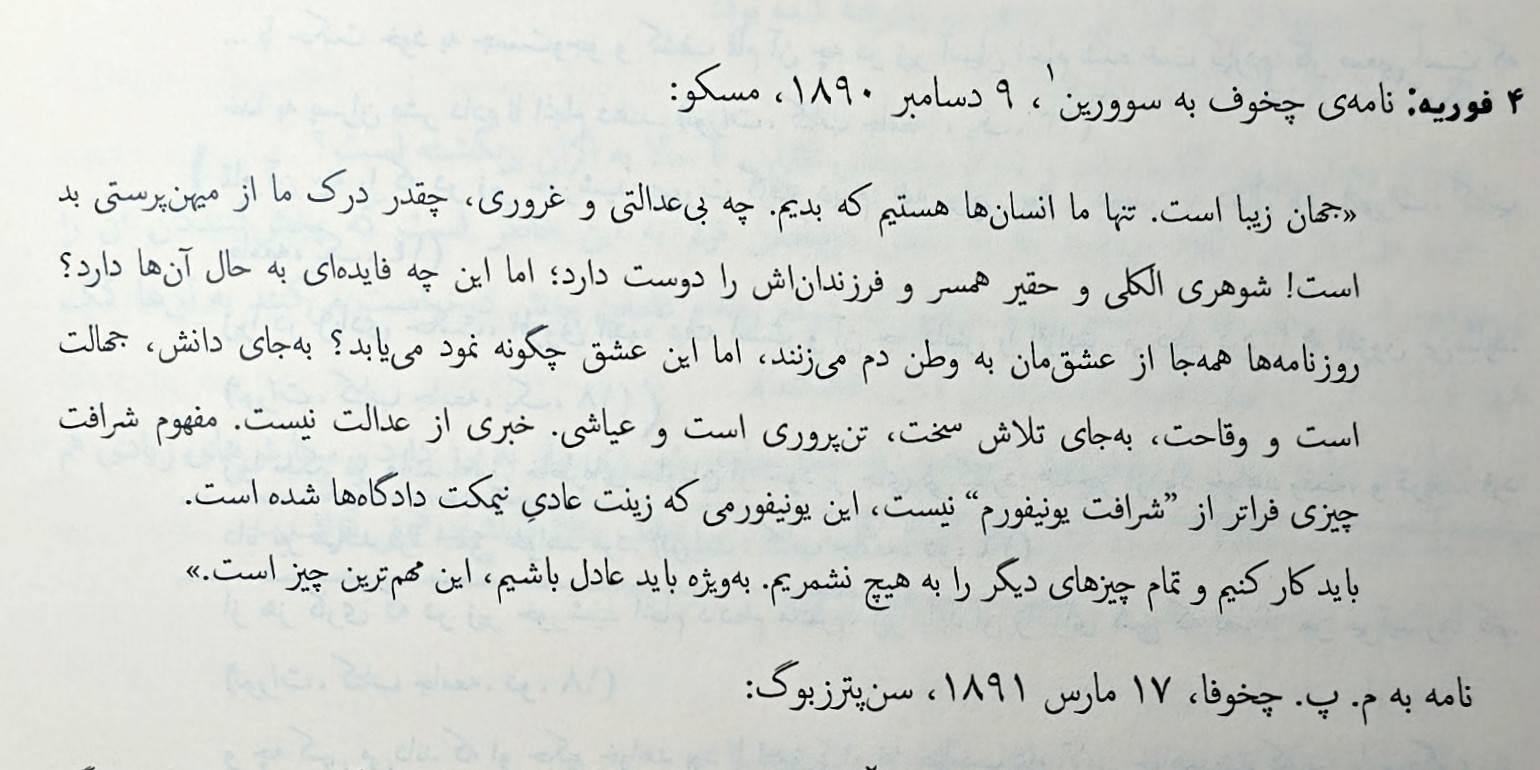 ۴ فوریه: نامه‌ی چخوف به سوورین۱، ۹ دسامبر ۱۸۹۰، مسکو:
«جهان زیبا است. تنها ما انسان‌ها هستیم که بدیم. چه بی‌عدالتی و غروری، چقدر درک ما از میهن‌پرستی بد
است! شوهری الکلی و حقیر همسر و فرزندان‌اش را دوست دارد؛ اما این چه فایده‌ای به حال آن‌ها دارد؟
روزنامه‌ها همه‌جا از عشق‌مان به وطن دم می‌زنند، اما این عشق چگونه نمود می‌یابد؟ به‌جای دانش، جهالت
است و وقاحت، به‌جای تلاش سخت، تن‌پروری است و عیاشی. خبری از عدالت نیست. مفهوم شرافت
چیزی فراتر از ”شرافت یونیفورم“ نیست، این یونیفورمی که زینت عادیِ نیمکت دادگاه‌ها شده است.
باید کار کنیم و تمام چیزهای دیگر را به هیچ نشمریم. به‌ویژه باید عادل باشیم، این مهم‌ترین چیز است.»
نامه به م. پ. چخوفا، ۱۷ مارس ۱۸۹۱، سن‌پترزبوگ: